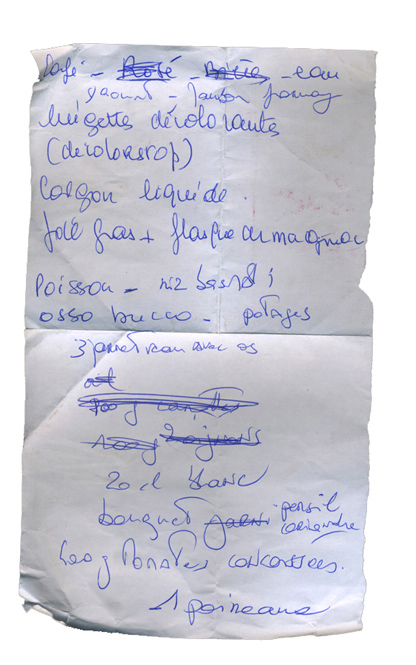 Café - Rosé - - eau
yaourt - jambon fromag
lingettes décolorantes
(décolorstop)
Calgon liquide.
foie gras + flasque armagnac
Poisson - riz basmati
osso bucco - potages
3 jarret veau avec os
ail
700 g carottes
100 g 2 oignons
20 cl blanc
bouquet garni persil
coriandre
400 g tomates concassées.
1 poireaux